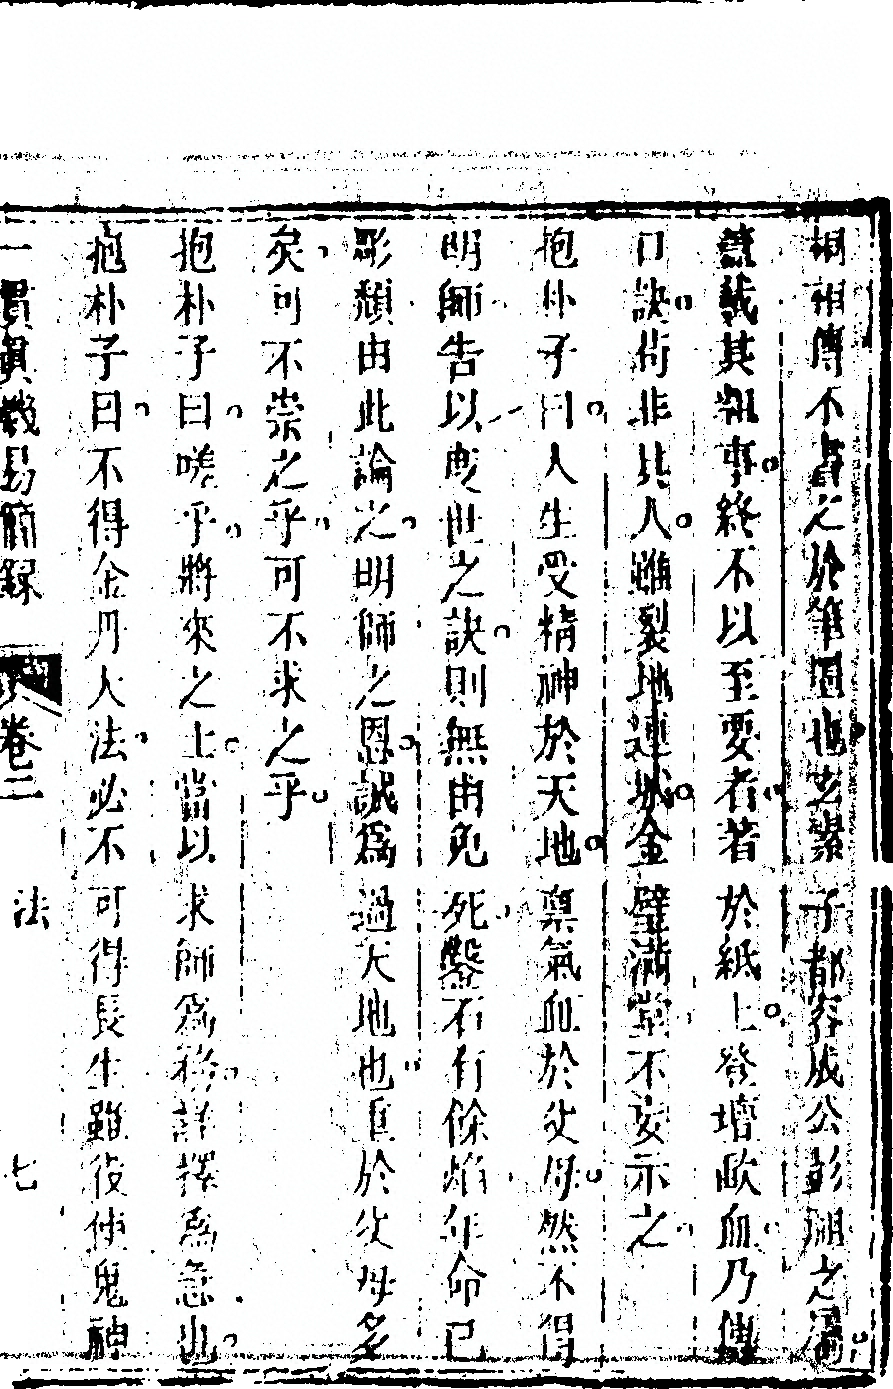 相祖傳不書之於筆墨也玄素子都容成公彭祖之屬
蓋載其粗事終不以至要者著於紙上登壇歃血乃傳
口訣苟非其人雖裂地連城金璧滿堂不妄示之
抱朴子曰人生受精神於天地稟氣血於父母然不得
明師告以度世之訣則無由免死鑿石有餘焰年命已
彫頹由此論之明師之恩誠爲過天地也重於父母多
矣可不崇之乎可不求之乎
抱朴子曰嗟乎將來之士當以求師爲務詳擇爲急也
抱朴子曰不得金丹大法必不可得長生雖役使鬼神
一貫眞機易簡錄 卷二 法 七